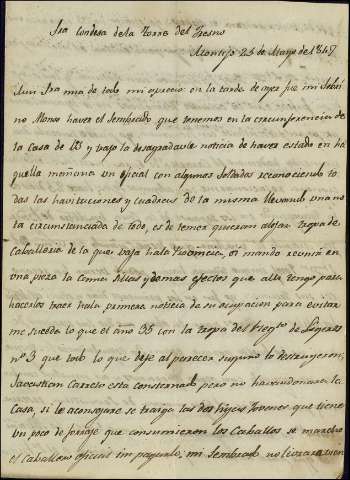 Sra Condesa de la Torre del Fresno
Montijo 25 de Mayo de 1847
Mui Sra mia de todo mi aprecio: en la tarde de ayer fue mi Sobri
no Alonso haver el Sembrado que tenemos en la circunferencia de
la Casa de y bajo la desagradable noticia de haver estado en ha
quella mañana un oficial con algunos Soldados reconociendo to
das las havitaciones y cuadras de la misma llevando una no
ta circunstanciada de todo, es de temer quieran alojar tropa de
Caballeria de la que vaja ha la Provincia, el mando reunir en
una pieza la y demas efectos que alli tengo para
hacerlos traer ha la primera noticia de su ocupacion para evitar
me suceda lo que el año 35 con la tropa del Regto de Ligeros
nº 3 que todo lo que deje al parecer seguro lo destruyeron;
Savastian Carreto esta consternado pero no havandonara la
Casa, si le aconsejare se traiga las dos hijas Jovenes que tiene
un poco de forraje que consumieron los Caballos se marcho
el Caballero oficial sin pagarlo, mi Sembrado no livrara vien